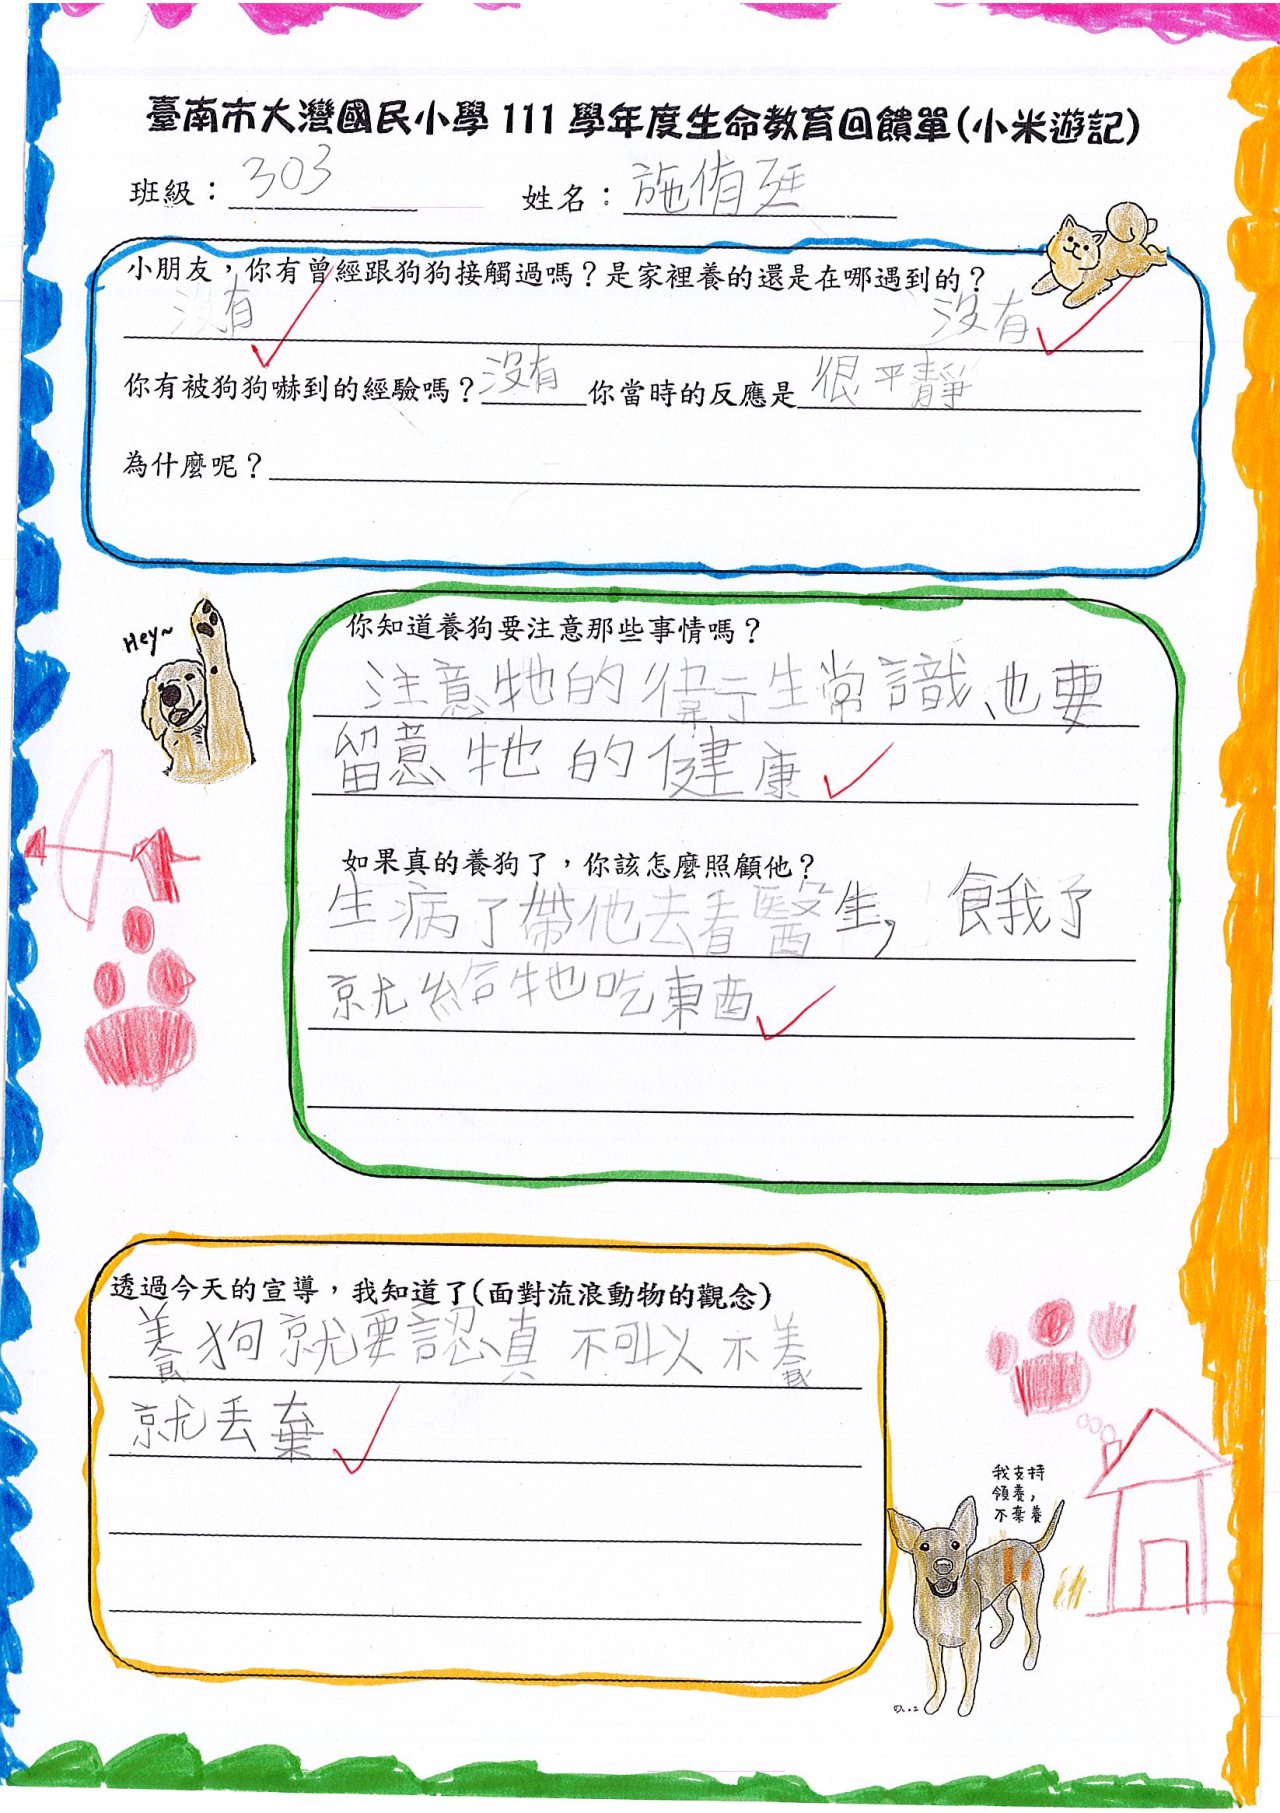 臺南市大灣國民小學 111 學年度生命教育回饋單(小米遊記)
班級：303 姓名：施侑廷
小朋友，你有曾經跟狗狗接觸過嗎？是家裡養的還是在哪遇到的？
沒有 沒有
你有被狗狗嚇到的經驗嗎？沒有 你當時的反應是 很平靜
為什麼呢？
Hey~
你知道養狗要注意那些事情嗎？
注意牠的衛生常識、也要
留意牠的健康
如果真的養狗了，你該怎麼照顧他？
生病了帶他去看醫生，餓了
就給牠吃東西
透過今天的宣導，我知道了(面對流浪動物的觀念)
養狗就要認真 不可以不養
就丟棄
我支持
領養，
不棄養